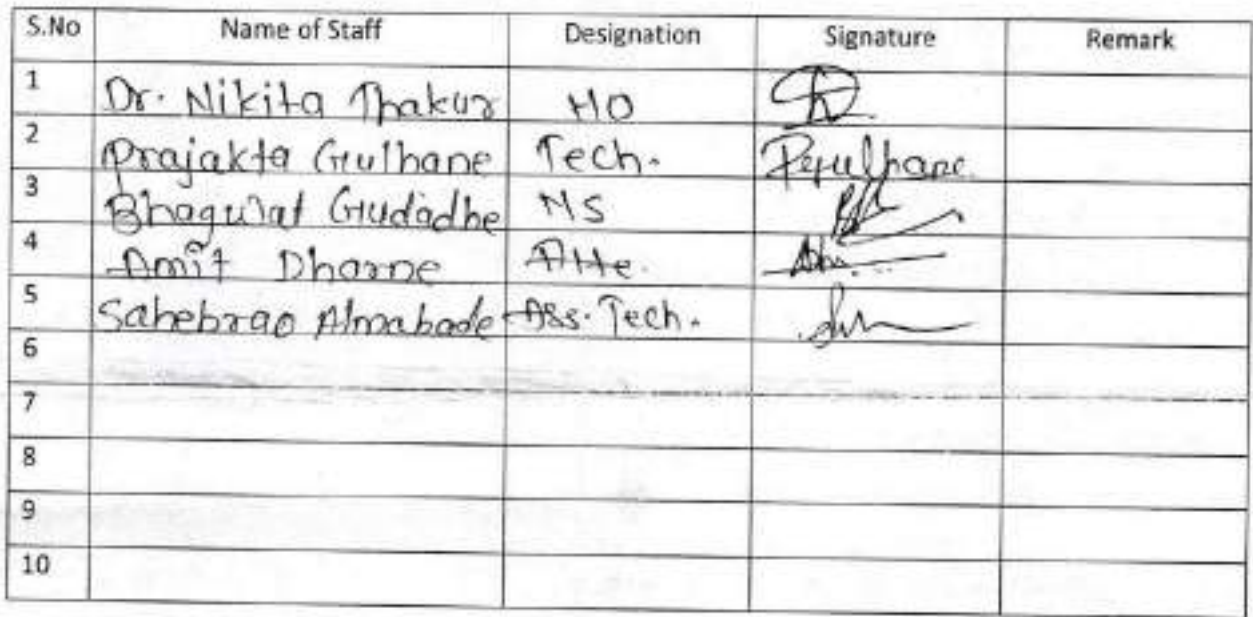 S.No Name of Staff Designation Signature Remark
1 Dr. Nikita Thakur MO
2 Prajakta Gulhane Tech. Pgulhane
3 Bhagwat Gudadhe MS
4 Amit Dharne Atte.
5 Sahebrao Almabade Ass. Tech.
6
7
8
9
10